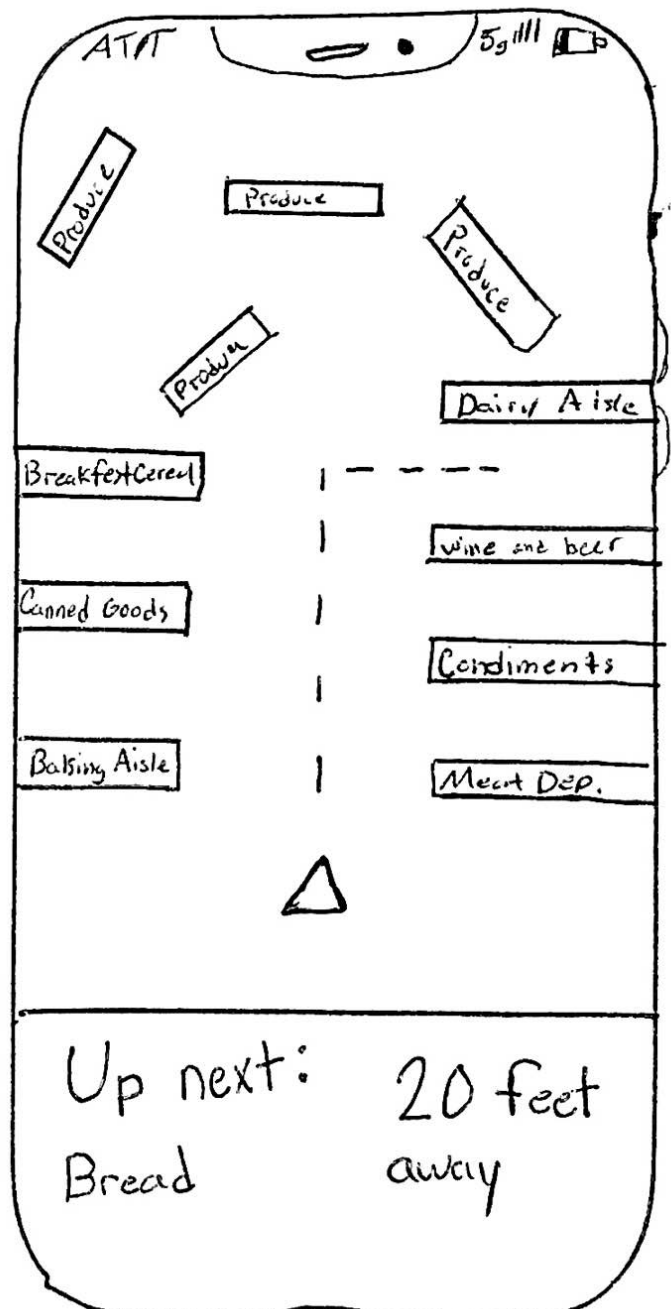 AT/T
5g
Produce
Produce
Produce
Produce
Dairy Aisle
BreakfestCereal
wine and beer
Canned Goods
Condiments
Baking Aisle
Meat Dep.
Up next: 20 feet
Bread away